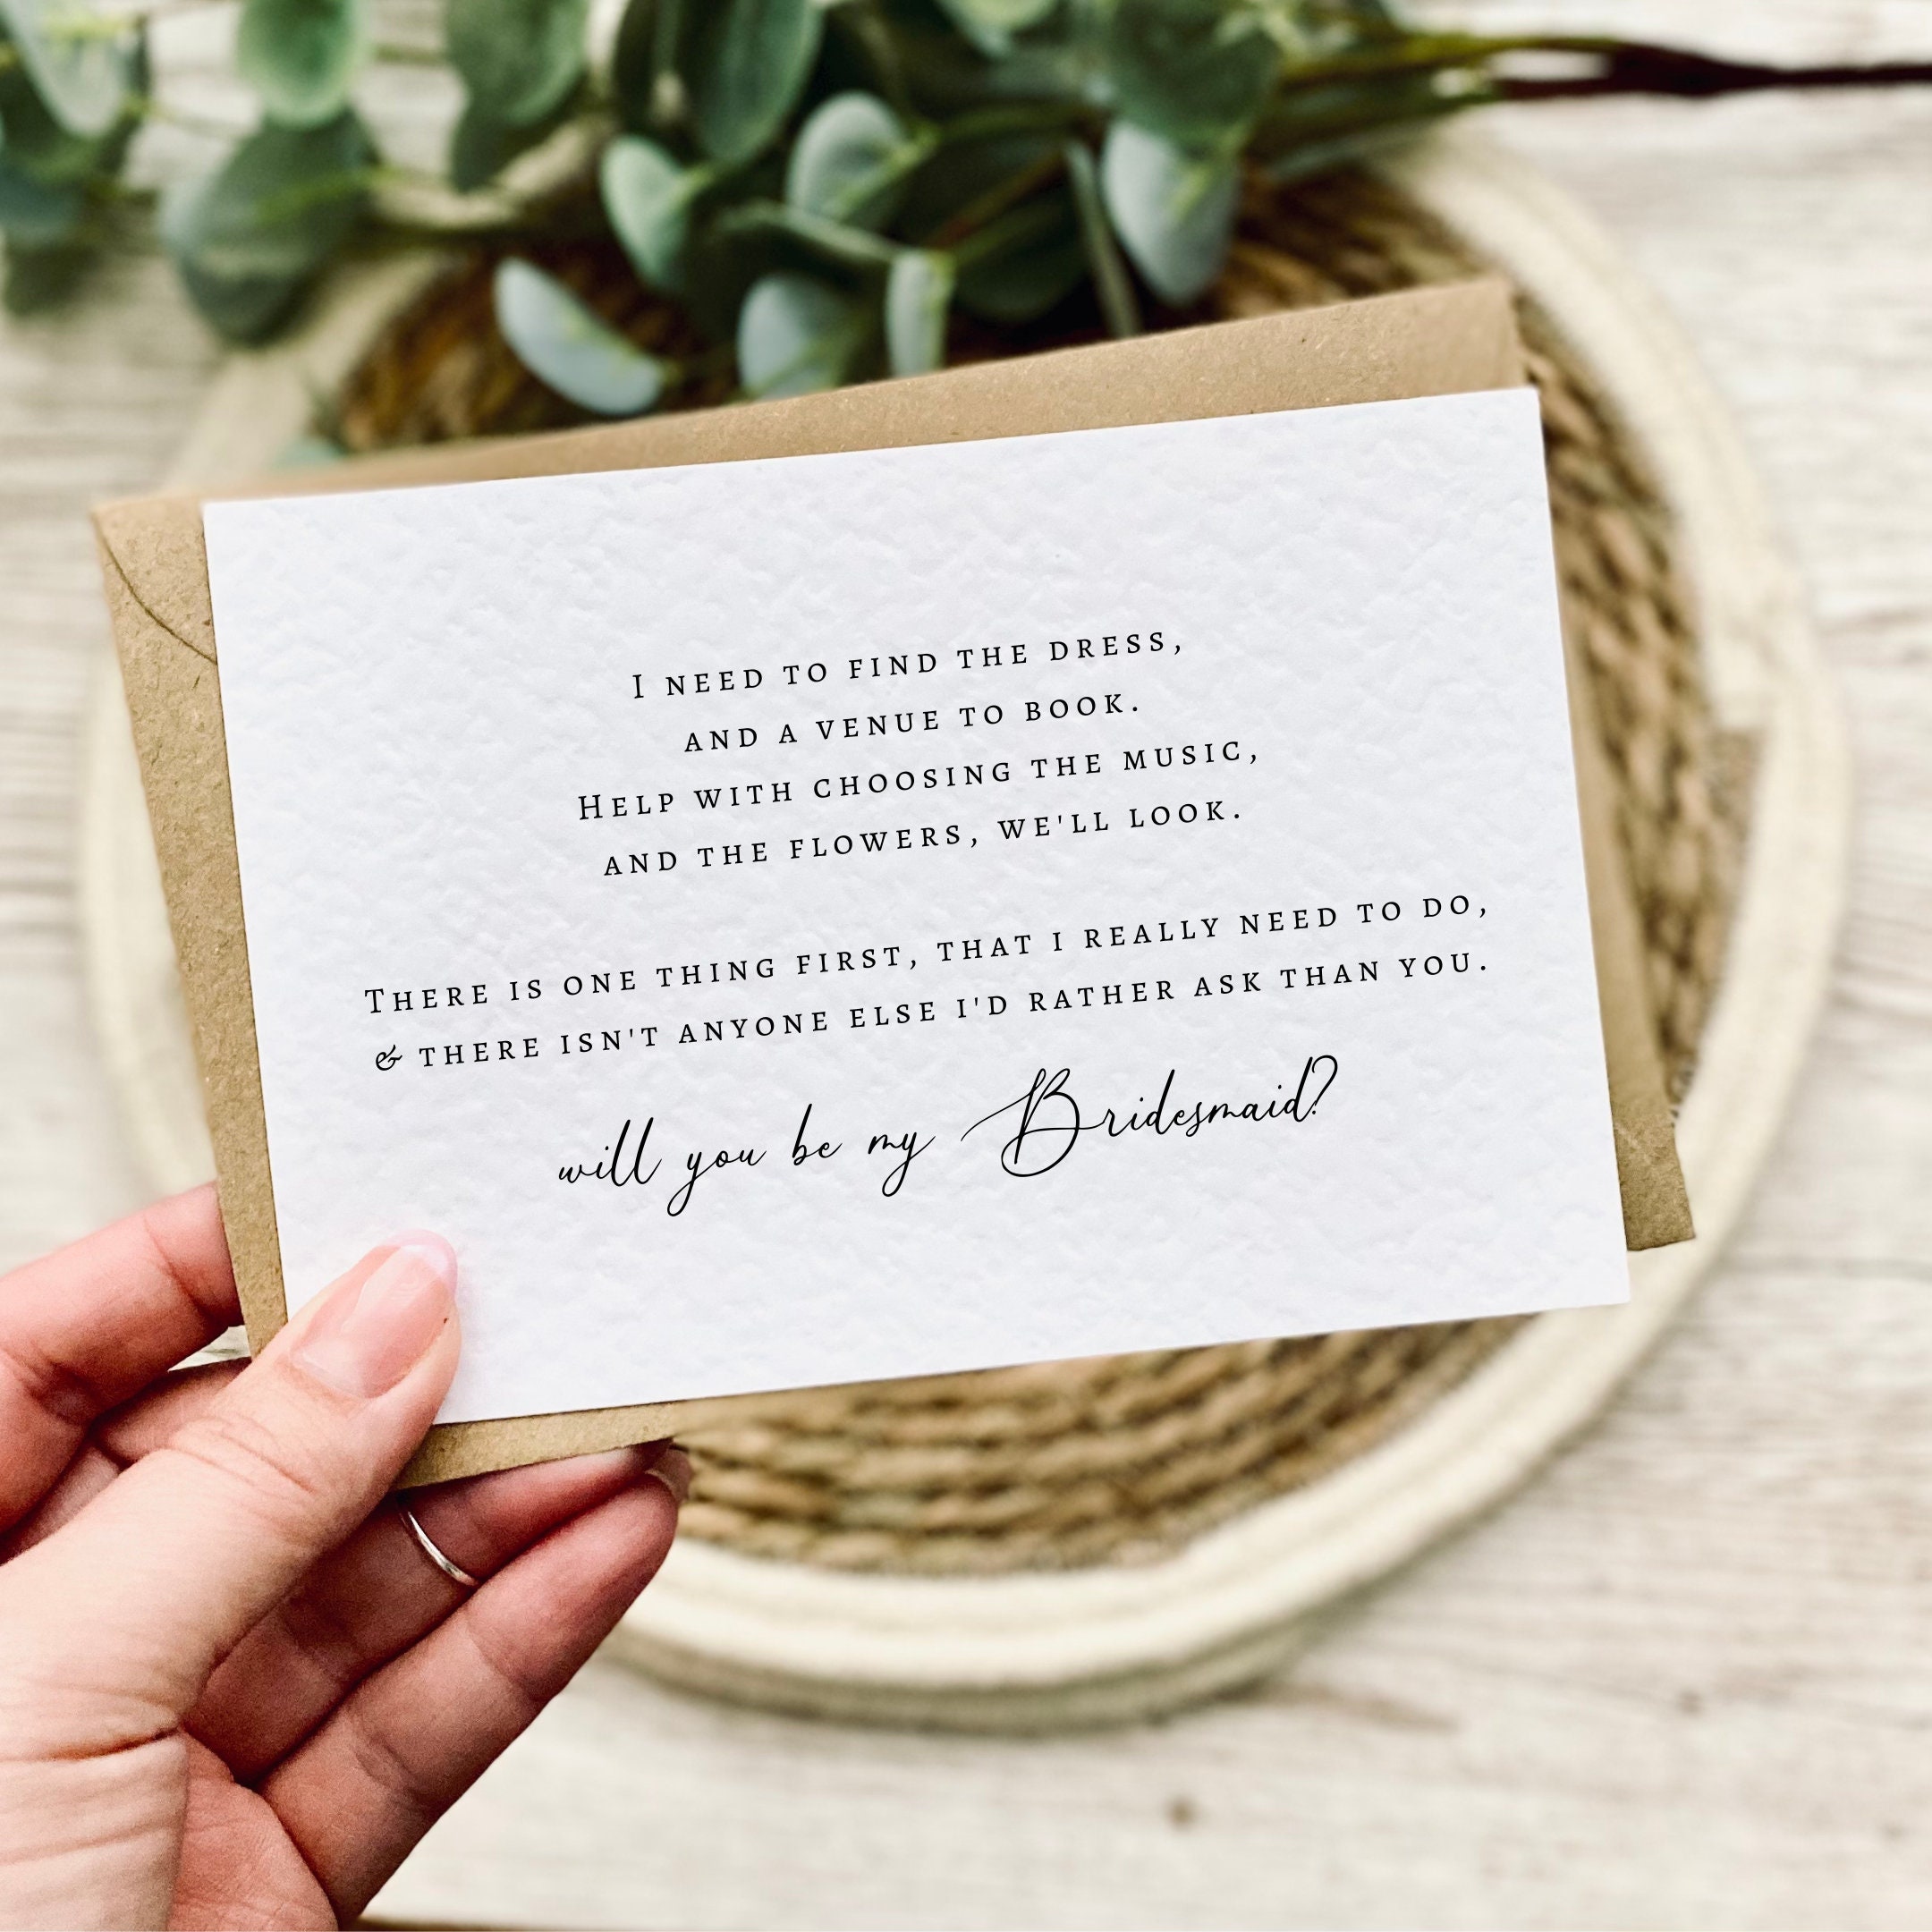 I NEED TO FIND THE DRESS,
AND A VENUE TO BOOK.
HELP WITH CHOOSING THE MUSIC,
AND THE FLOWERS, WE'LL LOOK.
THERE IS ONE THING FIRST, THAT I REALLY NEED TO DO,
& THERE ISN'T ANYONE ELSE I'D RATHER ASK THAN YOU.
will you be my Bridesmaid?